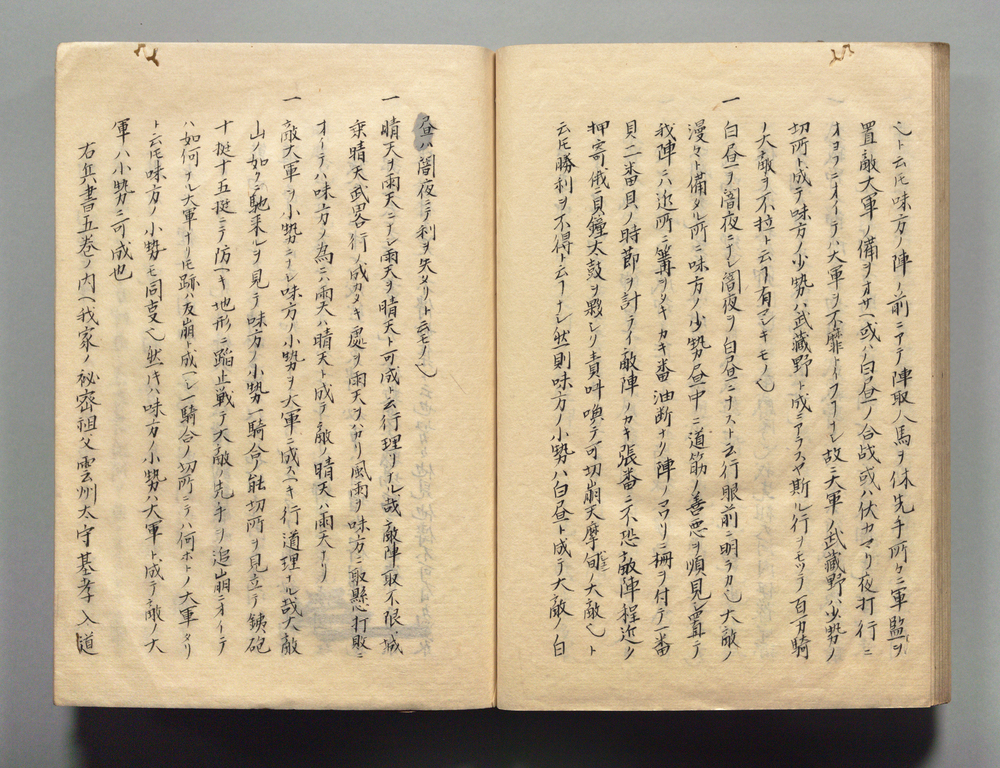 也ト云𪜈味方ノ陣ノ前ニアテ陣取人馬ヲ休先手所々ニ軍監ヲ
置敵大軍ノ備ヲオサヘ或ハ白昼ノ合戦或ハ伏カマリ夜打行ニ
オヨフニオイテハ大軍ヲ不靡トイフコナシ故ニ大軍ノ武蔵野ハ少勢ノ
切所ト成テ味方ノ少勢ハ武蔵野ト成ニアラスヤ斯ル行ヲモツテ百万騎
ノ大敵ヲ不拉ト云フ有マシキモノ也
一 白昼ヲ闇夜ニナシ闇夜ヲ白昼ニナスト云行眼前ニ明ラカ也大敵ノ
漫々ト備タル所ニ味方ノ少勢昼中ニ道筋ノ善悪ヲ順見シ置テ
我陣ニハ近所ニ篝ヲタキカキ番油断ナク陣ノマワリニ柵ヲ付テ一番
貝二番貝ノ時節ヲ計ライ敵陣ノカキ張番ニ不恐敵陣程近ク
押寄俄貝鐘太鼓ヲ夥シク責叫喚テ可切崩天摩旬ノ大敵也ト
云𪜈勝利ヲ不得ト云フナシ然則味方ノ小勢ハ白昼ト成テ大敵ノ白
昼ハ闇夜ニテ利ヲ失タリト云モノ也
一 晴天ヲ雨天ニナシ雨天ヲ晴天ト可成ト云行理リナル哉敵陣取不限城
乗晴天武畧行ノ成カタキ處ヲ雨天ヲハカリ風雨ヲ味方ニ取懸打敗ニ
オイテハ味方ノ為ニハ雨天ハ晴天ト成テ敵ノ晴天ハ雨天ナリ
一 敵大軍ヲ小勢ニナシ味方ノ小勢ヲ大軍ニ成スヘキ行道理ナル哉大敵
山ノ如クニ馳来ルヲ見テ味方ノ小勢一騎合ノ能切所ヲ見立テ銕砲
十挺十五挺ニテ防ヘキ地形ニ蹈止戦テ大敵ノ先手ヲ追崩ニオイテ
ハ如何ナル大軍ナリ𪜈跡ハ友崩ト成ヘシ一騎合ノ切所ニテハ何ホトノ大軍タリ
ト云𪜈味方ノ小勢モ同㕝也然ハ味方ノ小勢ハ大軍ト成テ敵ノ大
軍ハ小勢ニ可成也
右兵書五巻ノ内ヘ我家ノ秘密祖父雲州太守基孝入道